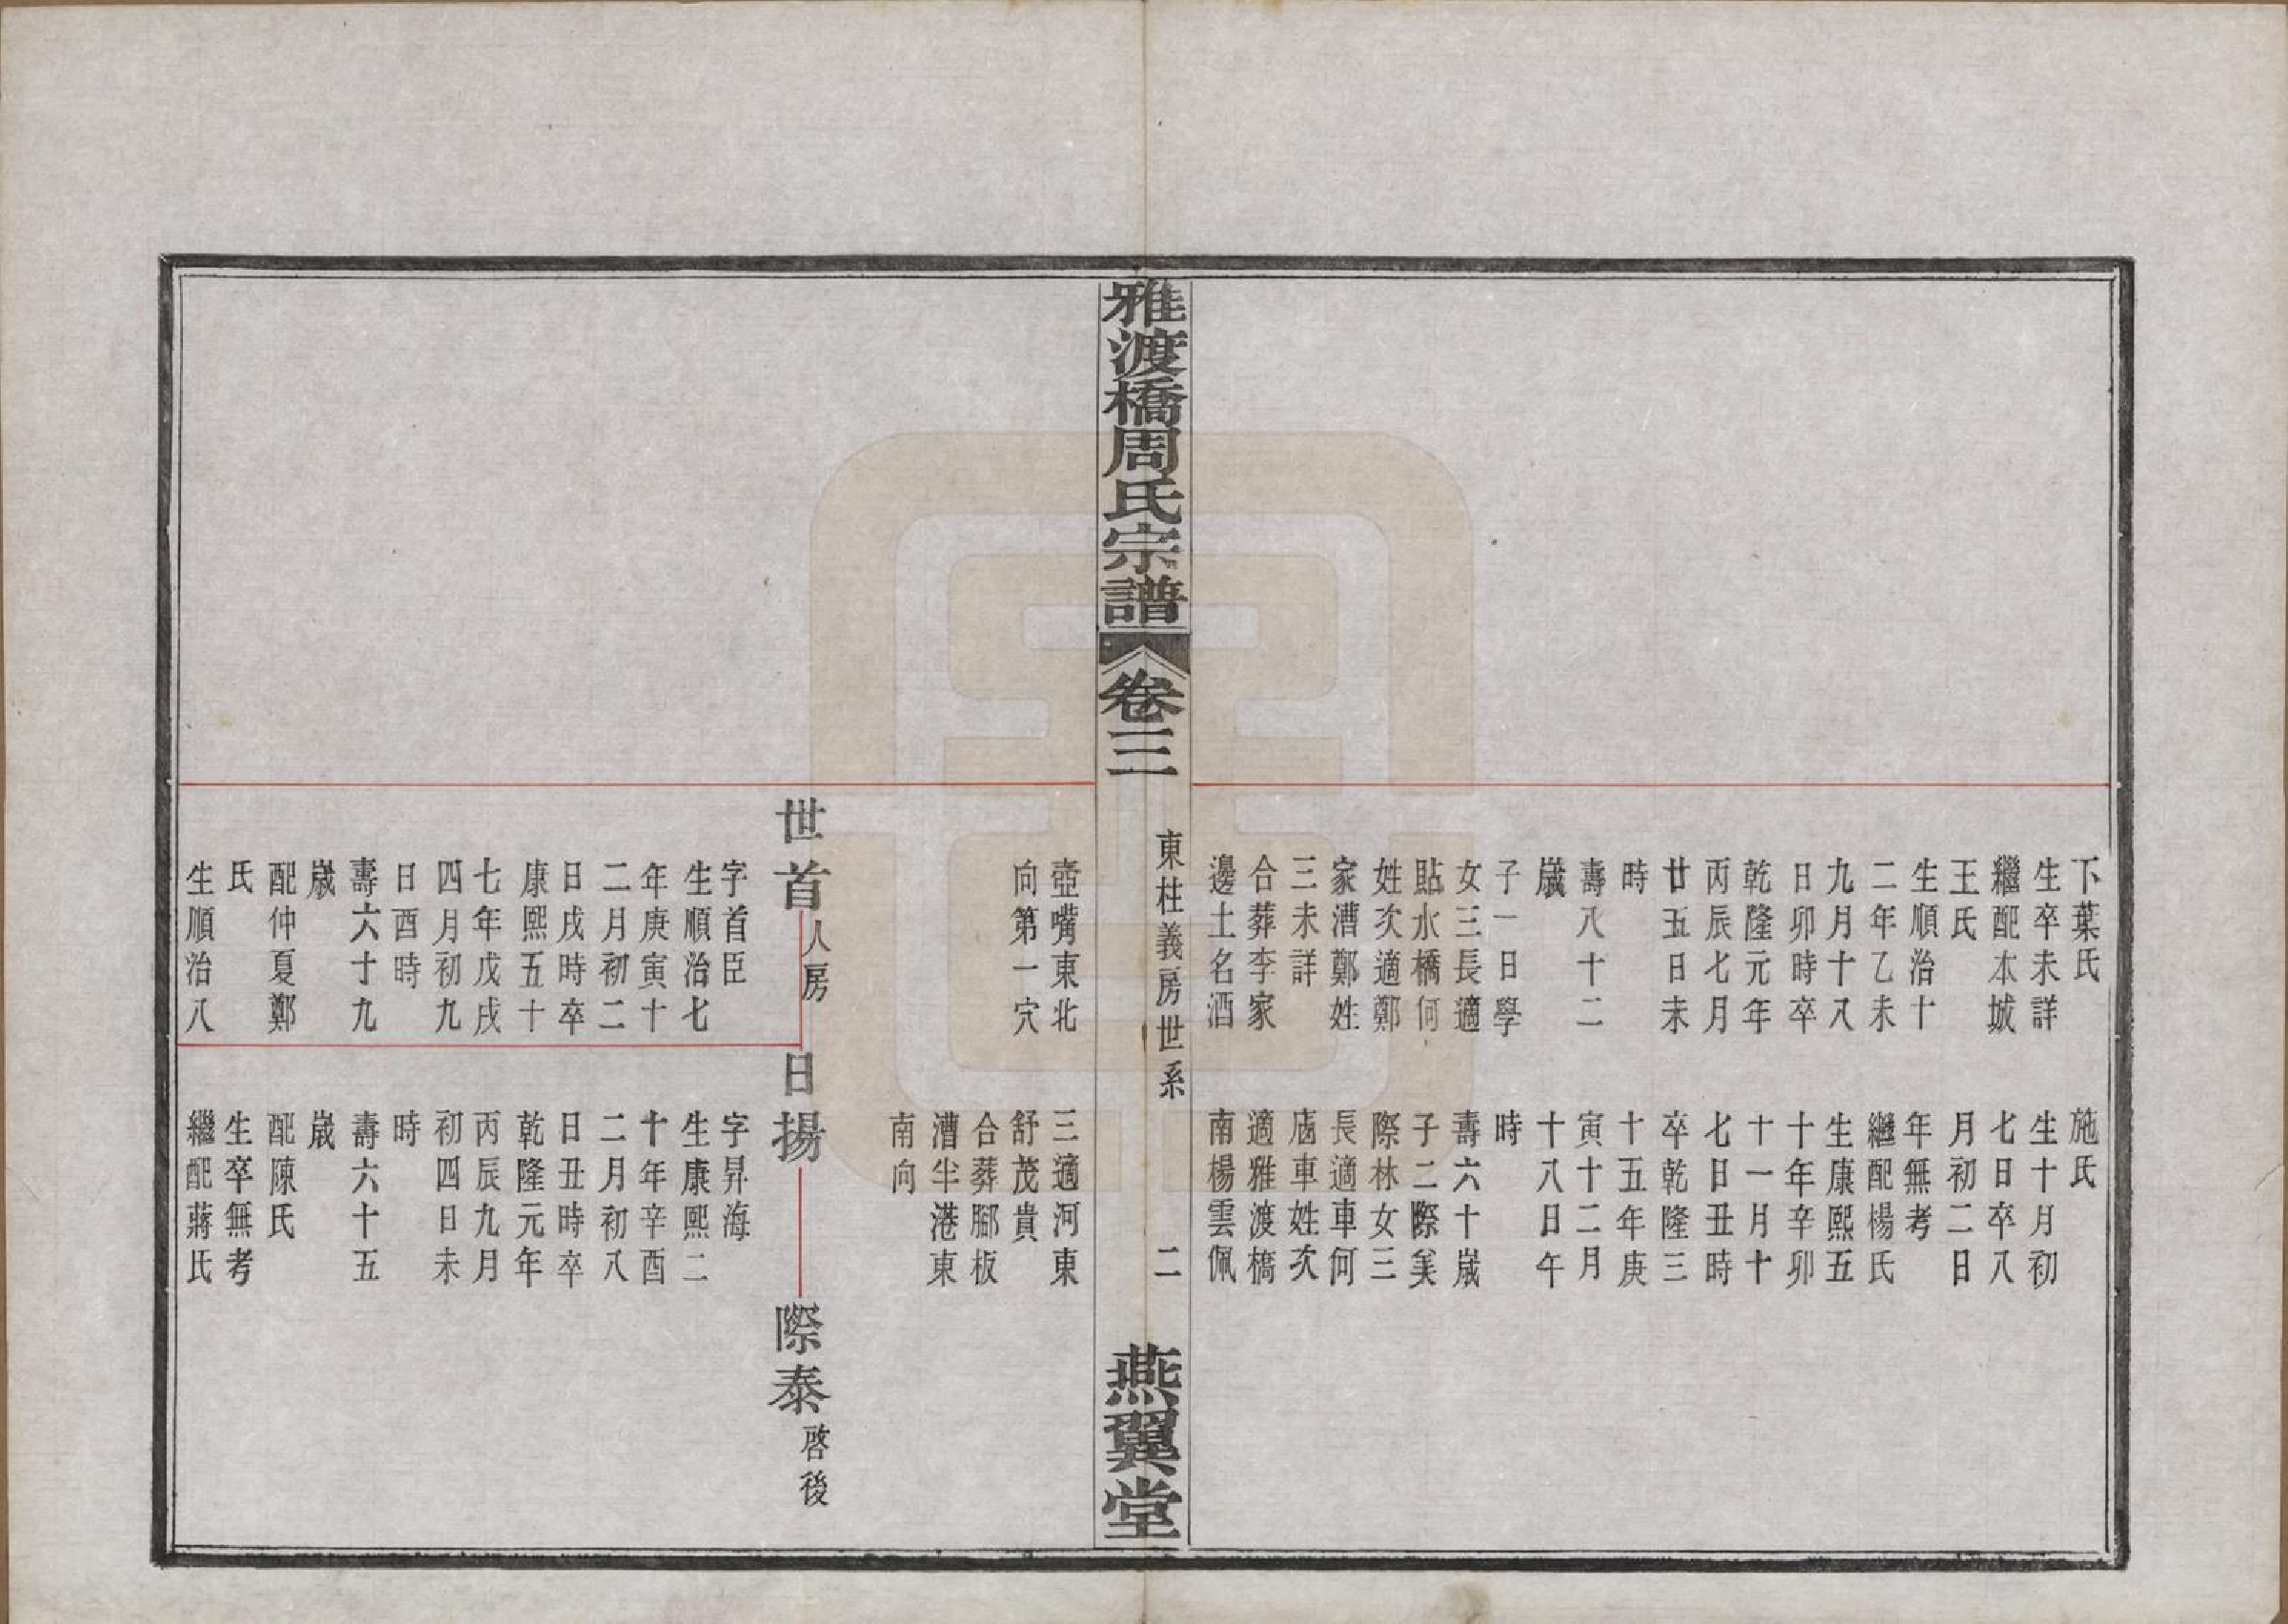 下葉氏
生卒未詳
繼配本城
王氏
生順治十
二年乙未
九月十八
日卯時卒
乾隆元年
丙辰七月
廿五日未
時
壽八十二
歲
子一日學
女三長適
貼水橋何
姓次適鄭
家漕鄭姓
三未詳
合葬李家
邊土名酒
施氏
生十月初
七日卒八
月初二日
年無考
繼配楊氏
生康熙五
十年辛卯
十一月十
七日丑時
卒乾隆三
十五年庚
寅十二月
十八日午
時
壽六十歲
子二際美
際林女三
長適車何
庙車姓次
適雅渡橋
南楊雲佩
雅渡橋周氏宗譜
卷三
東杜義房世系
二
燕翼堂
壺嘴東北
向第一穴
三適河東
舒茂貴
合葬腳板
漕半港東
南向
世首人房
日揚
際泰啓後
字首臣
生順治七
年庚寅十
二月初二
日戌時卒
康熙五十
七年戊戌
四月初九
日酉時
壽六十九
歲
配仲夏鄭
氏
生順治八
字昇海
生康熙二
十年辛酉
二月初八
日丑時卒
乾隆元年
丙辰九月
初四日未
時
壽六十五
歲
配陳氏
生卒無考
繼配蔣氏